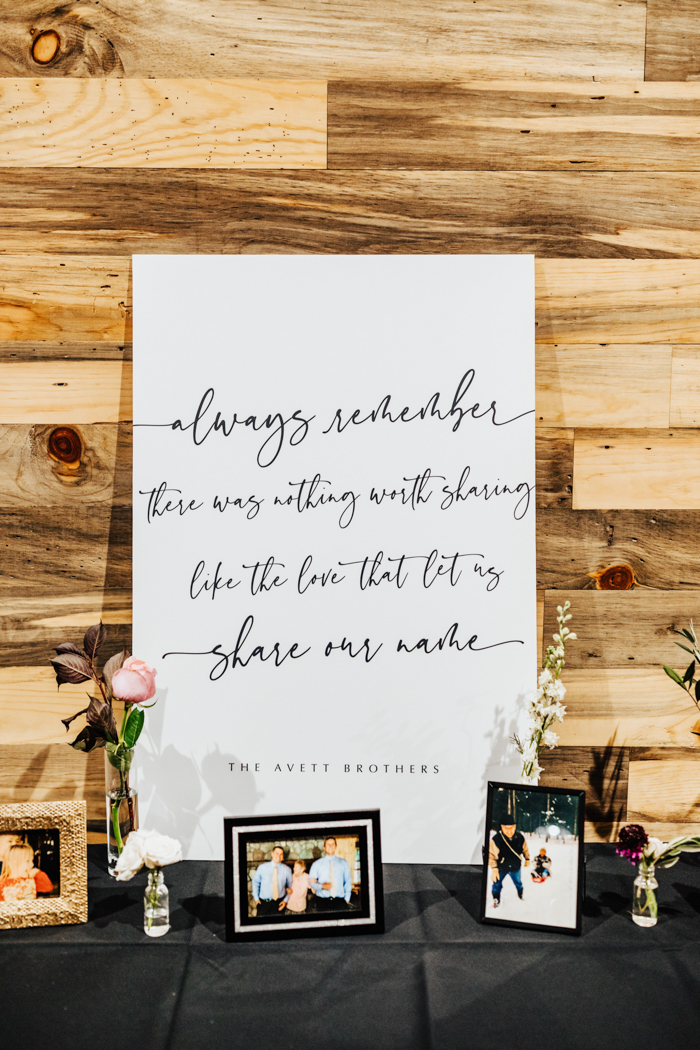 always remember
there was nothing worth sharing
like the love that let us
share our name
THE AVETT BROTHERS